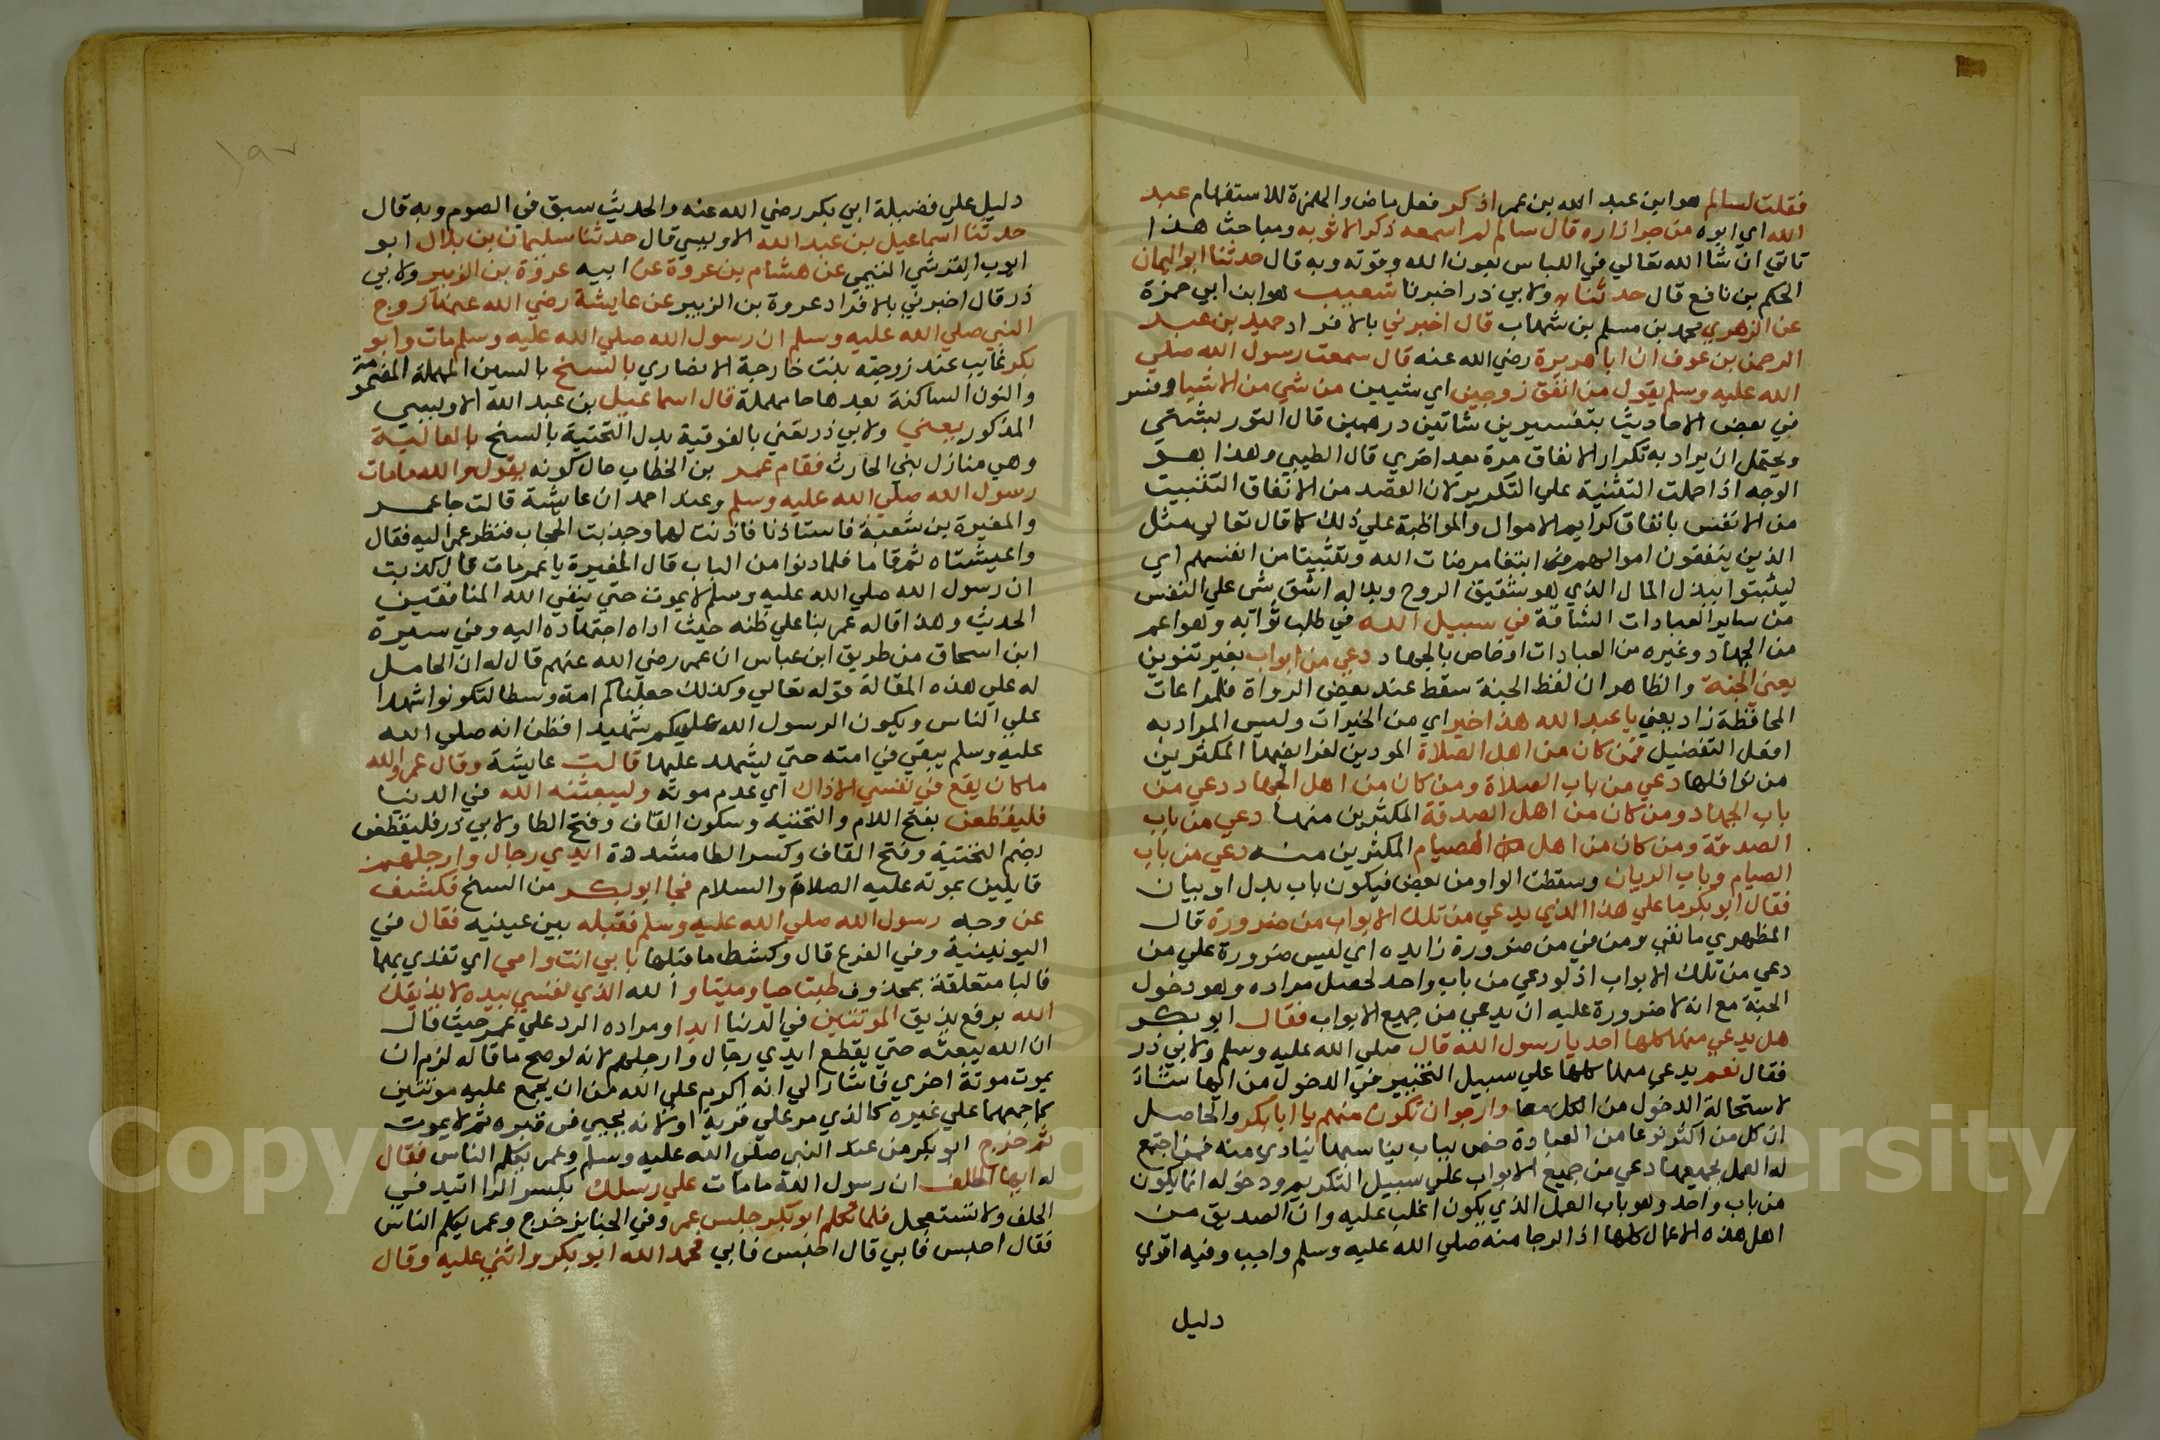 فقلت لسالم هو ابن عبد الله بن عمر اذكر فعل ماض والهمزة للاستفهام عبد
الله اي ابوه من جر ازاره قال سالم لم اسمعه ذكر الا ثوبه ومباحث هذا
تاتي ان شا الله تعالي في اللباس بعون الله وقوته وبه قال حدثنا ابو اليمان
الحكم بن نافع قال حدثنا ولابي ذر اخبرنا شعيب هو ابن ابي حمزة
عن الزهري محمد بن مسلم بن شهاب قال اخبرني بالافراد حميد بن عبد
الرحمن بن عوف ان ابا هريرة رضي الله عنه قال سمعت رسول الله صلي
الله عليه وسلم يقول من انفق زوجين اي شيين من شي من الاشيا وفسر
في بعض الاحاديث بتفسيرين شاتين درهمين قال التوربشتي
ويحتمل ان يراد به تكرار الانفاق مرة بعد اخري قال الطيبي وهذا هو
الوجه اذا حملت التثنية علي التكرير لان القصد من الانفاق التثبيت
من الانفس بانفاق كرايم الاموال والمواظبة علي ذلك كما قال تعالي مثل
الذين ينفقون اموالهم ابتغا مرضات الله وتثبيتا من انفسهم اي
ليثبتوا ببذل المال الذي هو شقيق الروح وبذله اشق شي علي النفس
من ساير العبادات الشاقة في سبيل الله في طلب ثوابه وهو اعم
من الجهاد وغيره من العبادات او خاص بالجهاد دعي من ابواب بغير تنوين
يعني الجنة والظاهر ان لفظ الجنة سقط عند بعض الرواة فلمراعات
المحافظة زاد يعني يا عبد الله هذا خير اي من الخيرات وليس المراد به
افعل التفضيل فمن كان من اهل الصلاة المودين لفرايضها المكثرين
من نوافلها دعي من باب الصلاة ومن كان من اهل الجهاد دعي من
باب الجهاد ومن كان من اهل الصدقة المكثرين منها دعي من باب
الصدقة ومن كان من اهل الصيام المكثرين منه دعي من باب
الصيام وباب الريان وسقطت الواو من بعض فيكون باب بدل او بيان
فقال ابو بكر ما علي هذا الذي يدعي من تلك الابواب من ضرورة قال
المظهري ما نفي ومن في من ضرورة زايده اي ليس ضرورة علي من
دعي من تلك الابواب اذ لو دعي من باب واحد لحصل مراده وهو دخول
الجنة مع انه لا ضرورة عليه ان يدعي من جميع الابواب فقال ابو بكر
هل يدعي منها كلها احد يا رسول الله قال صلي الله عليه وسلم ولابي ذر
فقال نعم يدعي منها كلها علي سبيل التخيير في الدخول من ايها شاء
لاستحالة الدخول من الكل معا وارجو ان تكون منهم يا ابا بكر والحاصل
ان كل من اكثر نوعا من العبادة خص بباب يناسبها ينادي منه فمن اجتمع
له العمل بجميعها دعي من جميع الابواب علي سبيل التكريم ودخوله انما يكون
من باب واحد وهو باب العمل الذي يكون اغلب عليه وان الصديق من
اهل هذه الاعمال كلها اذ الرجا منه صلي الله عليه وسلم واجب وفيه اقوي
دليل
دليل علي فضيلة ابي بكر رضي الله عنه والحديث سبق في الصوم وبه قال
حدثنا اسماعيل بن عبد الله الاويسي قال حدثنا سليمان بن بلال ابو
ايوب القرشي التيمي عن هشام بن عروة عن ابيه عروة بن الزبير ولابي
ذر قال اخبرني بالافراد عروة بن الزبير عن عايشة رضي الله عنها زوج
النبي صلي الله عليه وسلم ان رسول الله صلي الله عليه وسلم مات وابو
بكر غايب عند زوجته بنت خارجة الانصاري بالسنح بالسين المهملة المضمومة
والنون الساكنة بعدها حا مهملة قال اسماعيل بن عبد الله الاويسي
المذكور يعني ولابي ذر تعني بالفوقية بدل التحتية بالسنح بالعالية
وهي منازل بني الحارث فقام عمر بن الخطاب حال كونه يقول والله ما مات
رسول الله صلي الله عليه وسلم وعند احمد ان عايشة قالت جا عمر
والمغيرة بن شعبة فاستاذنا فاذنت لهما وجذبت الحجاب فنظر عمر اليه فقال
واغشيتاه ثم قاما فلما دنوا من الباب قال المغيرة يا عمر مات قال كذبت
ان رسول الله صلي الله عليه وسلم لا يموت حتي يفني الله المنافقين
الحديث وهذا قاله عمر بنا علي ظنه حيث اداه اجتهاده اليه وفي سيرة
ابن اسحاق من طريق ابن عباس ان عمر رضي الله عنهم قال له ان الحامل
له علي هذه المقالة قوله تعالي وكذلك جعلناكم امة وسطا لتكونوا شهدا
علي الناس ويكون الرسول عليكم شهيدا فظن انه صلي الله
عليه وسلم يبقي في امته حتي يشهد عليها قالت عايشة وقال عمر والله
ما كان يقع في نفسي الا ذاك اي عدم موته وليبعثنه الله في الدنيا
فليقطعن بفتح اللام والتحتيه وسكون القاف وفتح الطا ولابي ذر فليقطعن
بضم التحتية وفتح القاف وكسر الطا مشددة ايدي رجال وارجلهم
قايلين بموته عليه الصلاة والسلام فجا ابو بكر من السنح فكشف
عن وجه رسول الله صلي الله عليه وسلم فقبله بين عينيه فقال في
اليونينية وفي الفرع قال وكشط ما قبلها بابي انت وامي اي تفدي بهما
فالبا متعلقة بمحذوف طبت حيا وميتا والله الذي نفسي بيده لا يذيقك
الله برفع يذيق الموتتين في الدنيا ابدا ومراده الرد علي عمر حيث قال
ان الله يبعثه حتي يقطع ايدي رجال وارجلهم لانه لو صح ما قاله لزم ان
يموت موتة اخري فاشار الي انه اكرم علي الله من ان يجمع عليه موتتين
كما جمعهما علي غيره كالذي مر علي قرية او لانه يحيي في قبره ثم لا يموت
ثم خرج ابو بكر من عند النبي صلي الله عليه وسلم وعمر يكلم الناس فقال
له ايها الحالف ان رسول الله ما مات علي رسلك بكسر الرا اتيد في
الحلف ولا تستعجل فلما تكلم ابو بكر جلس عمر وفي الجنايز خرج وعمر يكلم الناس
فقال اجلس فابي قال اجلس فابي فحمد الله ابو بكر واثني عليه وقال
١٩٧